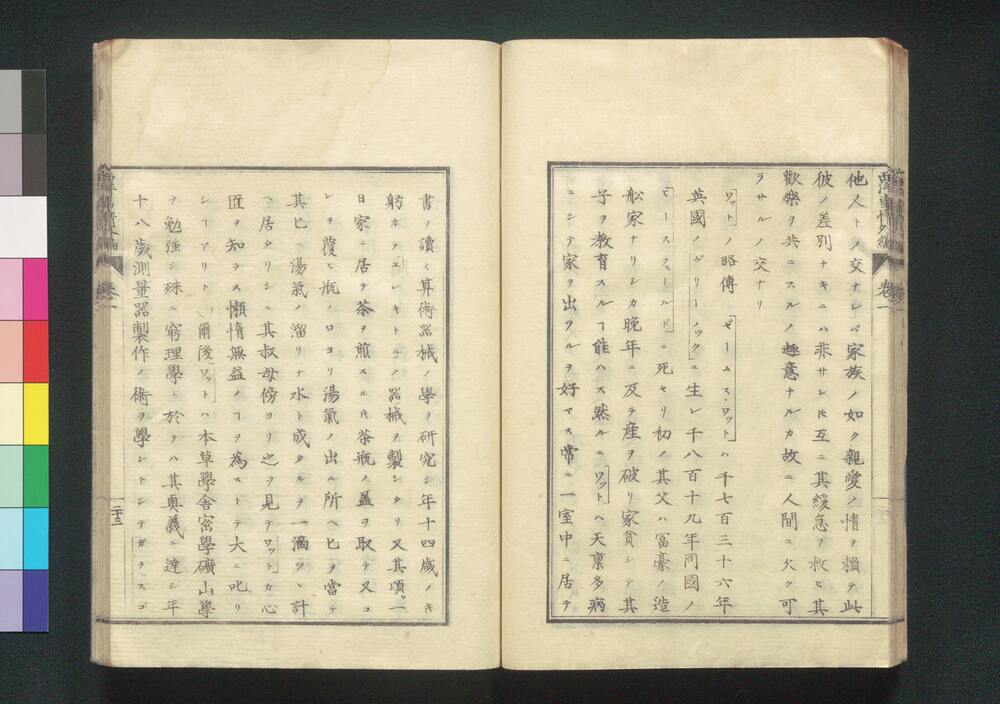 西洋事情外編 卷一
他人トノ交ナレバ家族ノ如ク親愛ノ情ヲ賴テ此
彼ノ差別ナキニハ非サレ𪜈互ニ其緩急ヲ救ヒ其
歡樂ヲ共ニスルノ趣意ナルカ故ニ人間ニ欠ク可
ラサルノ交ナリ
ワットノ略傳 ゼームス・ワットハ千七百三十六年
英國ノグリーノックニ生レ千八百十九年同國ノ
ヒースフィールドニ死セリ初ノ其父ハ冨豪ノ造
舩家ナリシカ晩年ニ及テ産ヲ破リ家貧シテ其
子ヲ教育スルヿ能ハス然ルニワットハ天稟多病
ニシテ家ヲ出ツルヲ好マス常ニ一室中ニ居テ
書ヲ讀ミ算術器械ノ學ヲ研究シ年十四歳ノキ
躬カラエレキトルノ器械ヲ製シタリ又其頃一
日家ニ居ヲ茶ヲ煎スルキ茶瓶ノ蓋ヲ取テ又コ
レヲ覆ヒ瓶ノロヨリ湯氣ノ出ル所ヘヒヲ當テ
其匕ヘ湯氣ノ溜リナ水ト成タルヲ一滴ツヽ計
ヘ居タリシニ其叔母傍ヨリ之ヲ見テワットカ心
匠ヲ知ヲス懶惰無益ノヿヲ為ストテ大ニ叱リ
シヿアリト 爾後ワットハ本草學舎密學礦山學
ヲ勉強シ殊ニ窮理學ニ於ヲハ其奥義ニ達シ年
十八歳測量器製作ノ術ヲ學ントシテガラスゴ
卷一
二十三